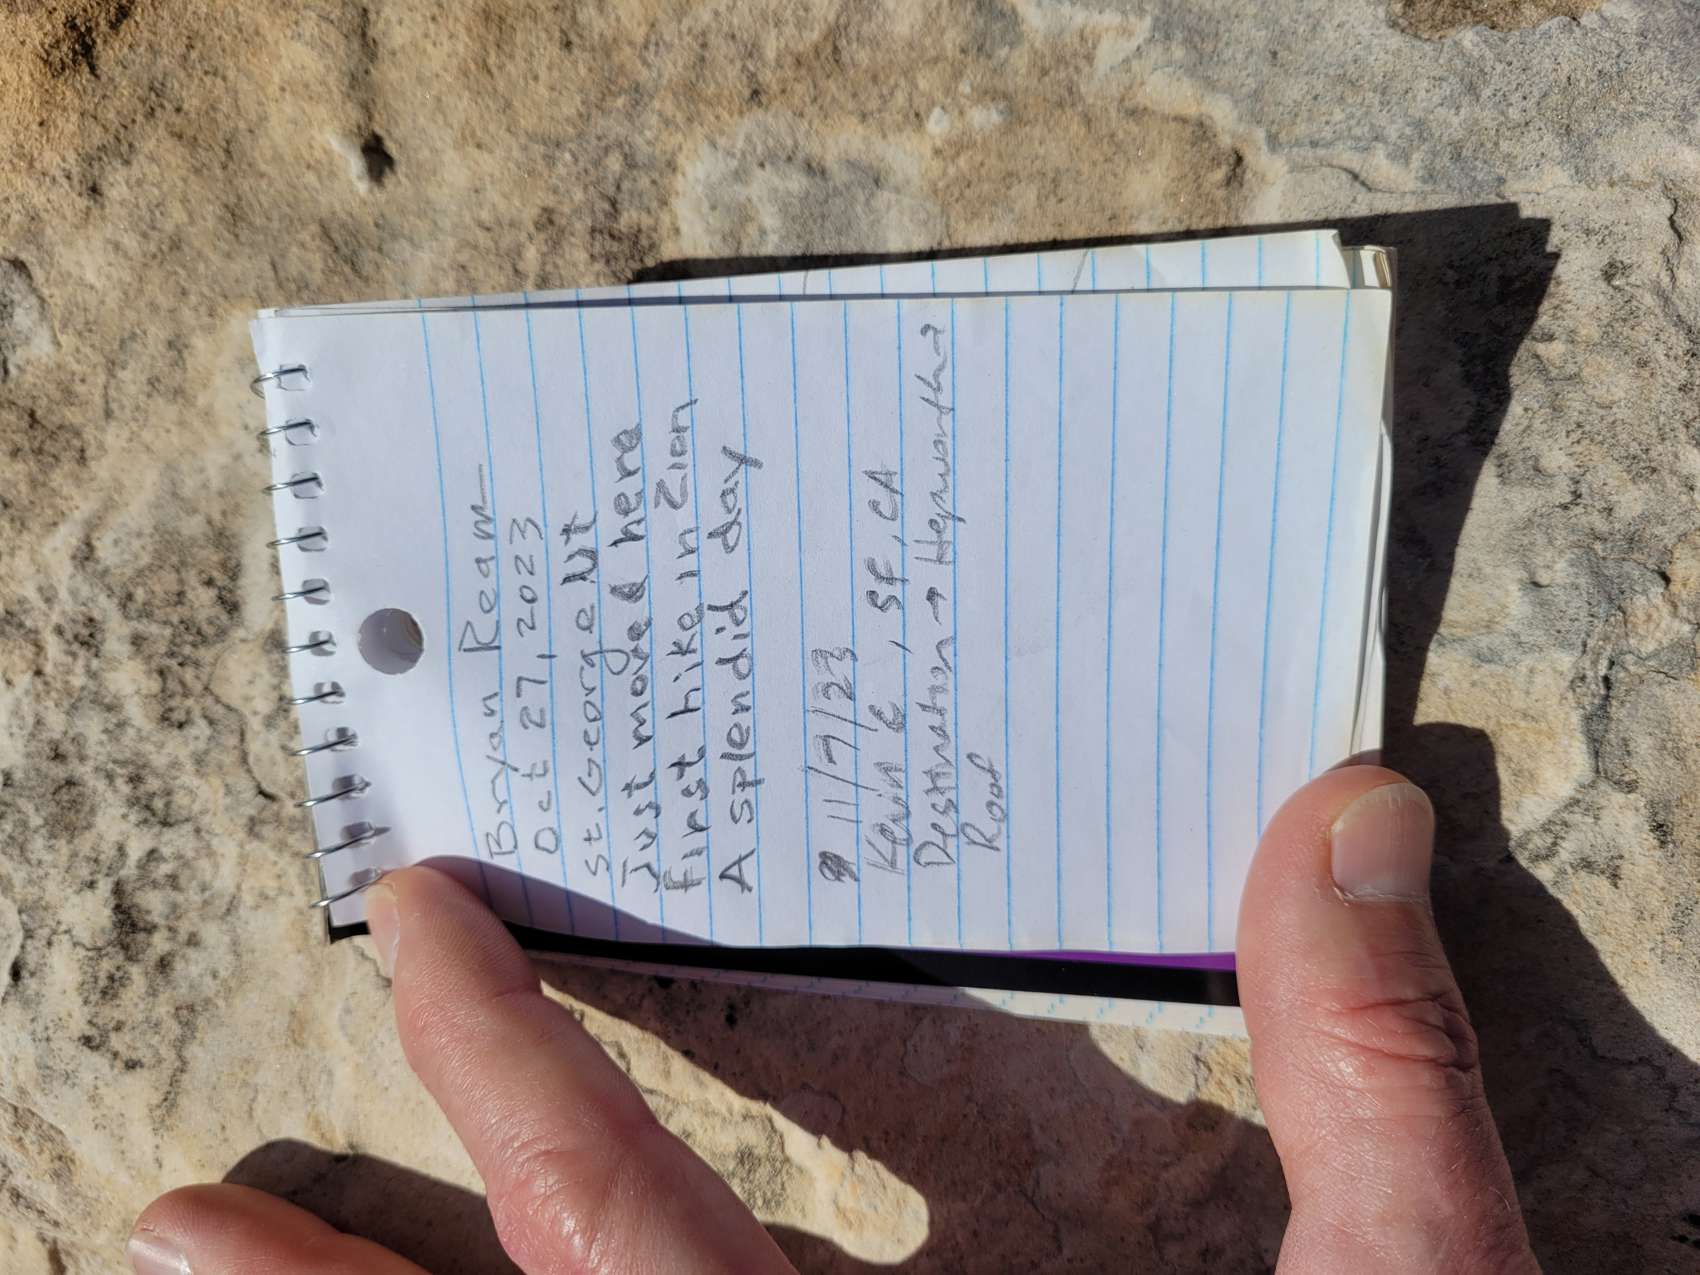 Bryan Ream
Oct 27, 2023
St. George Ut
Just moved here
First hike in Zion
A splendid day
11/7/23
Kevin G, SF, CA
Destination → Hepworth
Root